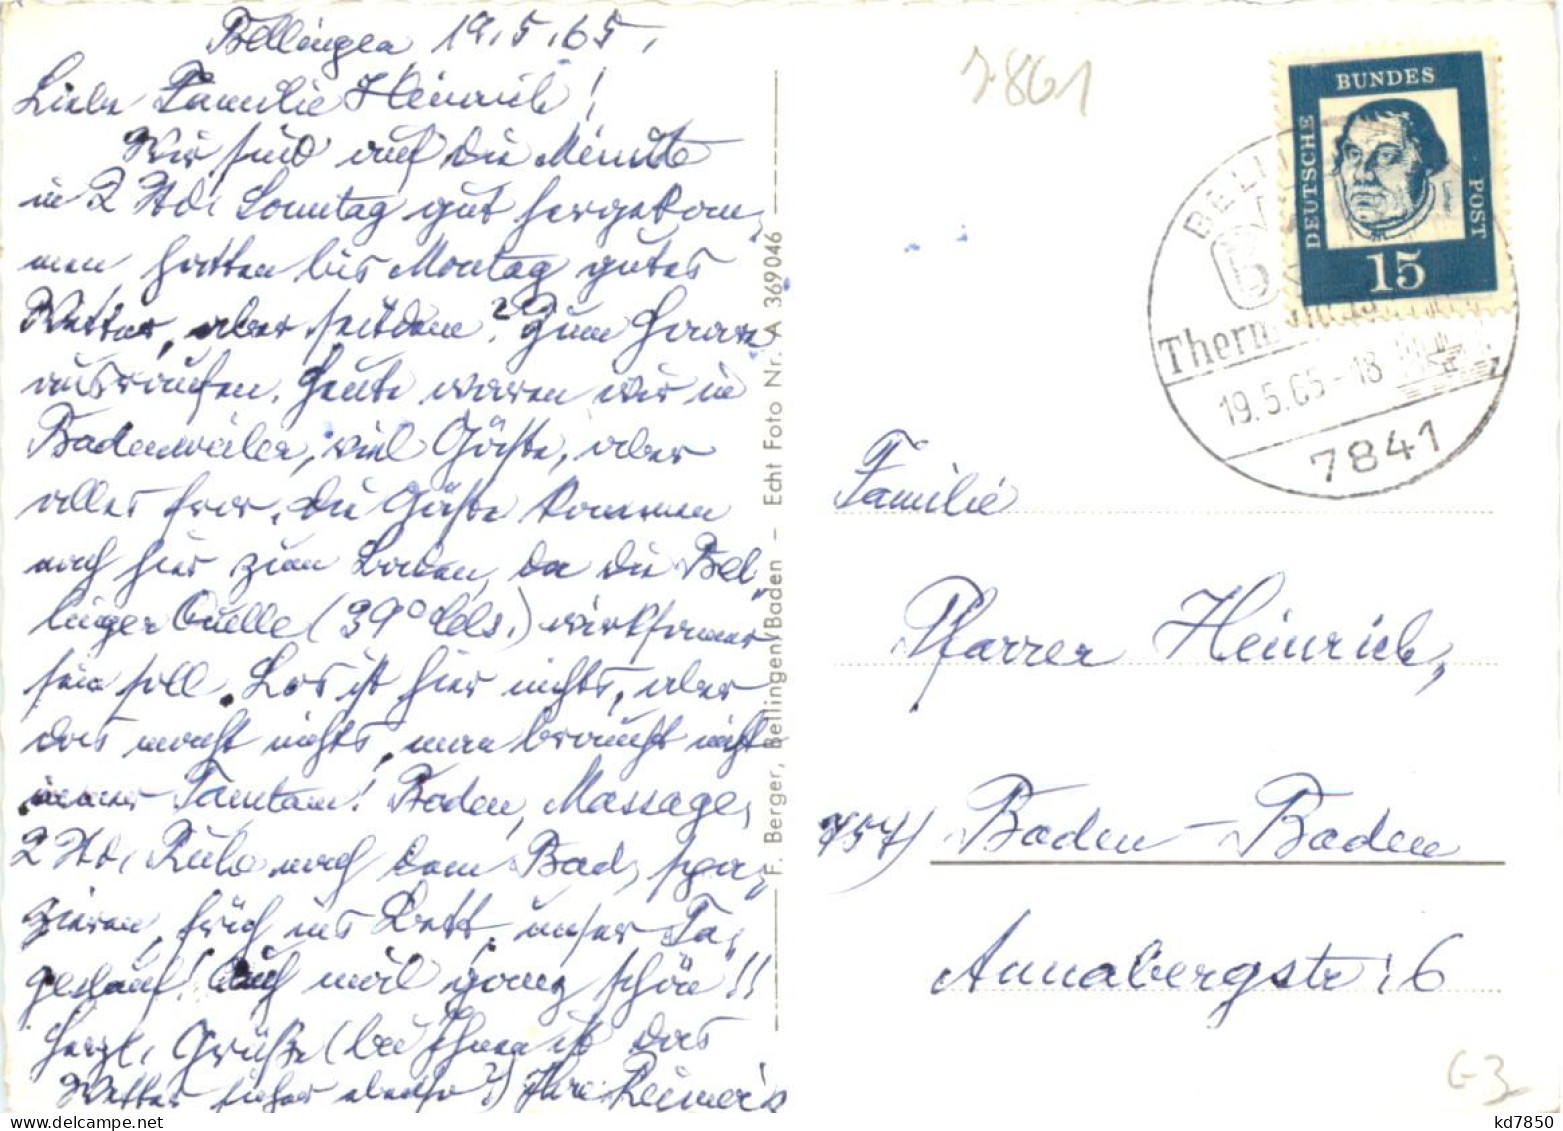 Bellingen 19.5.65.
Liebe Familie Heinrich!
Wir sind auf die Minute
in 2 Std. Sonntag gut hergekom-
men, hatten bis Montag gutes
Wetter, aber seitdem? Zum Haare
ausraufen. Heute waren wir in
Badenweiler, viel Gäste, aber
alles fror, die Gäste kommen
nach hier zum Baden, da die Bel-
linger Quelle (39° Cels.) wirksamer
sein soll. Los ist hier nichts, aber
das macht nichts, man braucht nicht
immer Tamtam! Baden, Massage,
2 Std. Ruhe nach dem Bad, spa-
zieren, früh ins Bett, unser Ta-
geslauf! Auch mal ganz schön!!
Herzl. Grüße (bei Ihnen ist das
Wetter sicher ebenso?) Ihre
F. Berger, Bellingen/Baden – Echt Foto Nr. A 369046
7861
DEUTSCHE BUNDES POST
15
BELLI
Therm
19.5.65-18
7841
Familie
Pfarrer Heinrich,
757) Baden-Baden
Annabergstr. 6
G3
kd7850